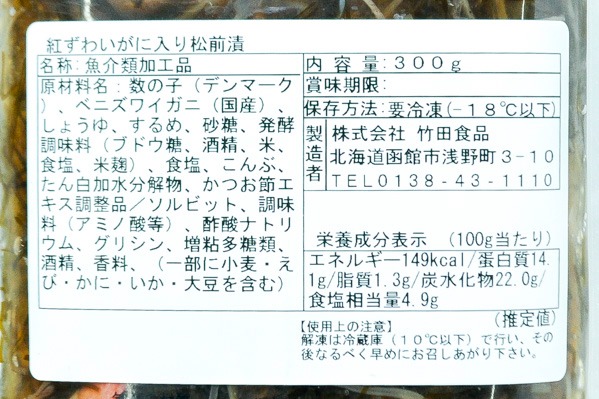 紅ずわいがに入り松前漬
名称:魚介類加工品
原材料名:数の子（デンマーク
）、ベニズワイガニ（国産）、
しょうゆ、するめ、砂糖、発酵
調味料（ブドウ糖、酒精、米、
食塩、米麹）、食塩、こんぶ、
たん白加水分解物、かつお節エ
キス調整品／ソルビット、調味
料（アミノ酸等）、酢酸ナトリ
ウム、グリシン、増粘多糖類、
酒精、香料、（一部に小麦・え
び・かに・いか・大豆を含む）
内容量:300g
賞味期限:
保存方法:要冷凍(-18℃以下)
製造者 株式会社 竹田食品
北海道函館市浅野町3-10
TEL0138-43-1110
栄養成分表示 (100g当たり)
エネルギー149kcal/蛋白質14.
1g/脂質1.3g/炭水化物22.0g/
食塩相当量4.9g
(推定値)
【使用上の注意】
解凍は冷蔵庫（10℃以下）で行い、その
後なるべく早めにお召しあがり下さい。